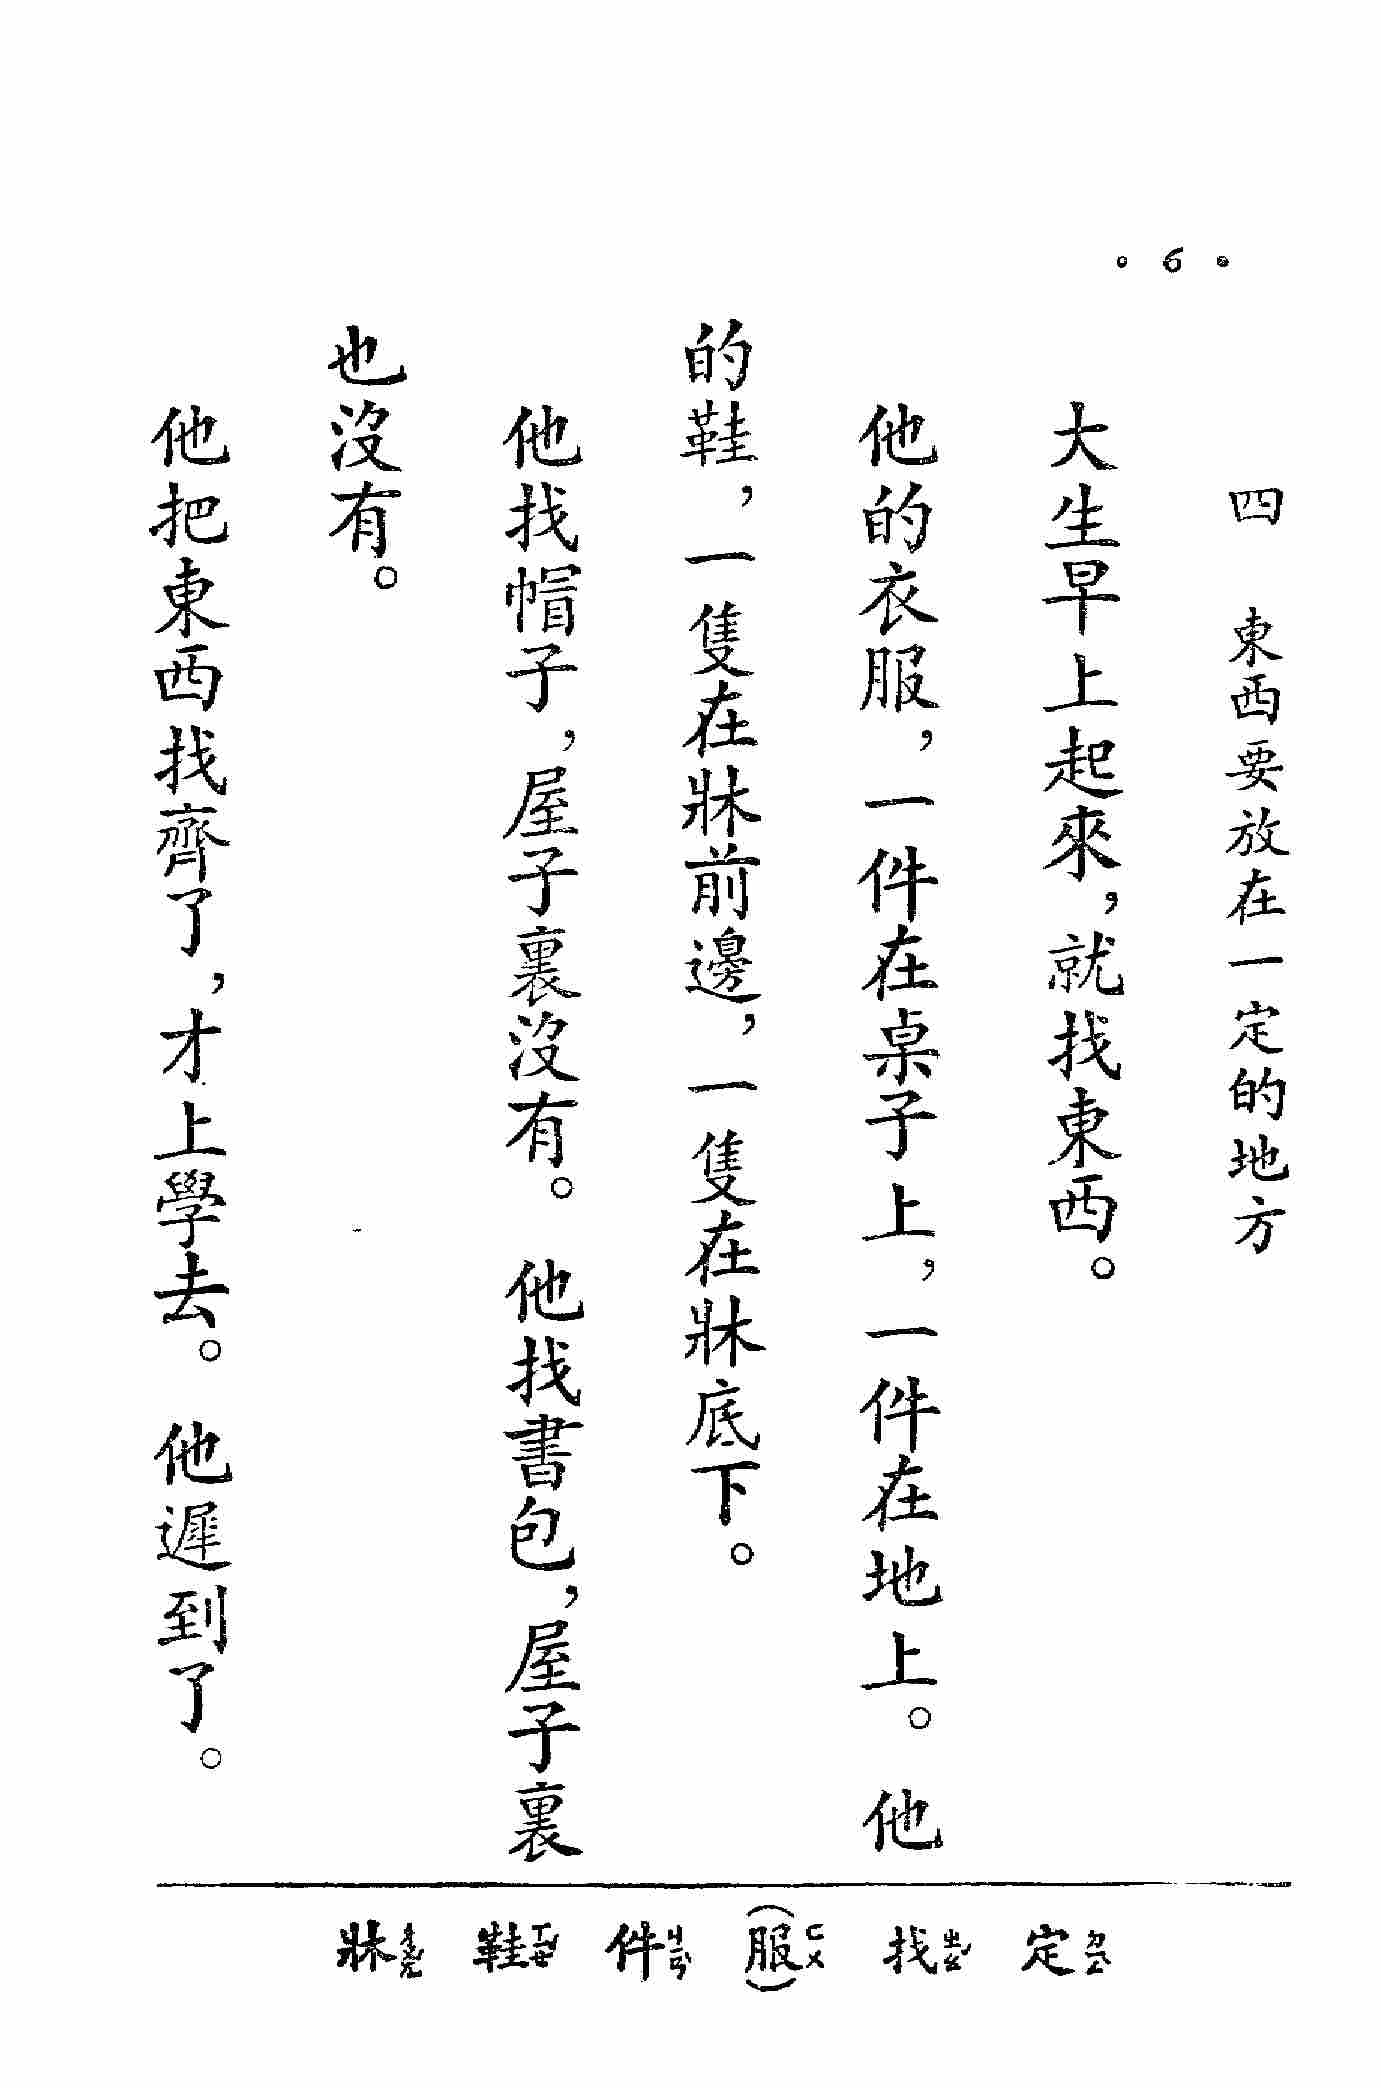 • 6 •
四　東西要放在一定的地方
大生早上起來，就找東西。
他的衣服，一件在桌子上，一件在地上。　他
的鞋，一隻在牀前邊，一隻在牀底下。
他找帽子，屋子裏沒有。　他找書包，屋子裏
也沒有。
他把東西找齊了，才上學去。　他遲到了。
定ㄉㄧㄥˋ　找ㄓㄠˇ　(服)ㄈㄨˊ　件ㄐㄧㄢˋ　鞋ㄒㄧㄝˊ　牀ㄔㄨㄤˊ